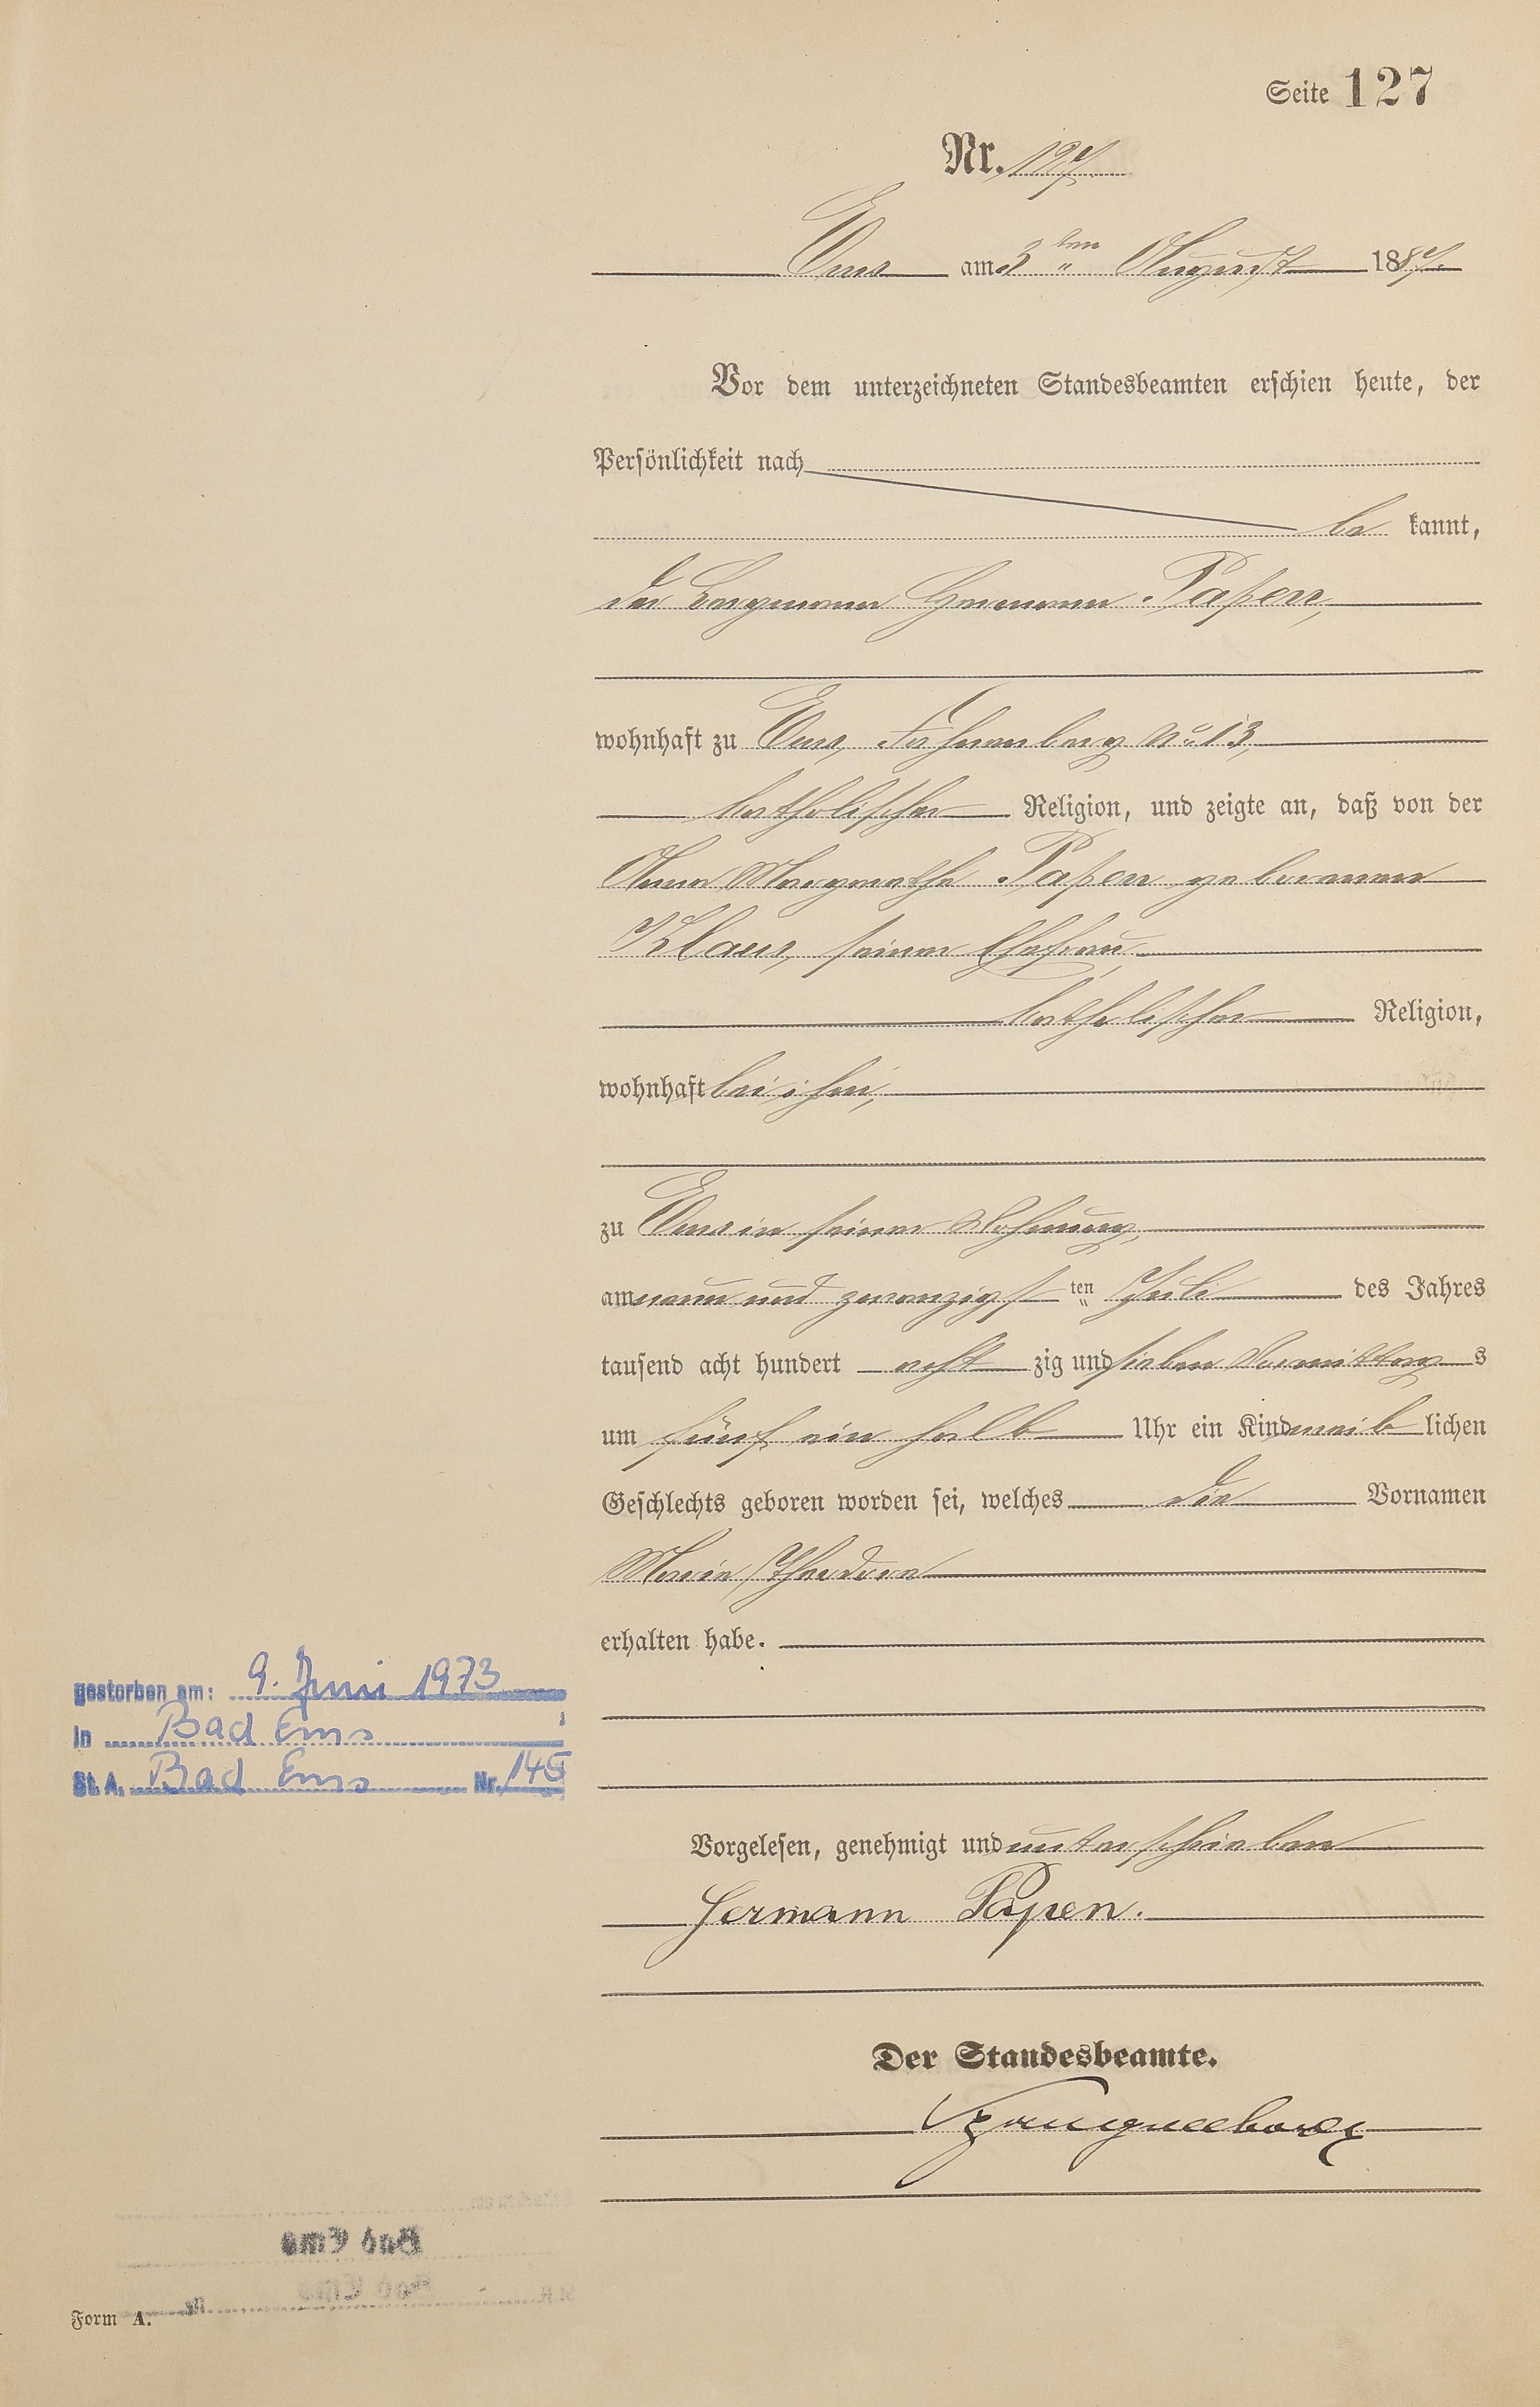 Seite 127
Nr. 127.
Ems am 3ten August 1887.
Vor dem unterzeichneten Standesbeamten erschien heute, der
Persönlichkeit nach
be kannt,
der Bergmann Hermann Papen,
wohnhaft zu Ems, Fahnenberg No 13,
katholischer Religion, und zeigte an, daß von der
Anna Margarethe Papen geborenen
Klaus, seiner Ehefrau,
katholischer Religion,
wohnhaft bei ihm,
zu Ems in seiner Wohnung,
am neun und zwanzigsten Juli des Jahres
tausend acht hundert acht zig und sieben Vormittags
um fünf ein halb Uhr ein Kind weib lichen
Geschlechts geboren worden sei, welches die Vornamen
Maria Theodora
erhalten habe.
gestorben am: 9. Juni 1973
in Bad Ems
St. A. Bad Ems Nr. 145
Vorgelesen, genehmigt und unterschrieben
Hermann Papen.
Der Standesbeamte.
Form A.